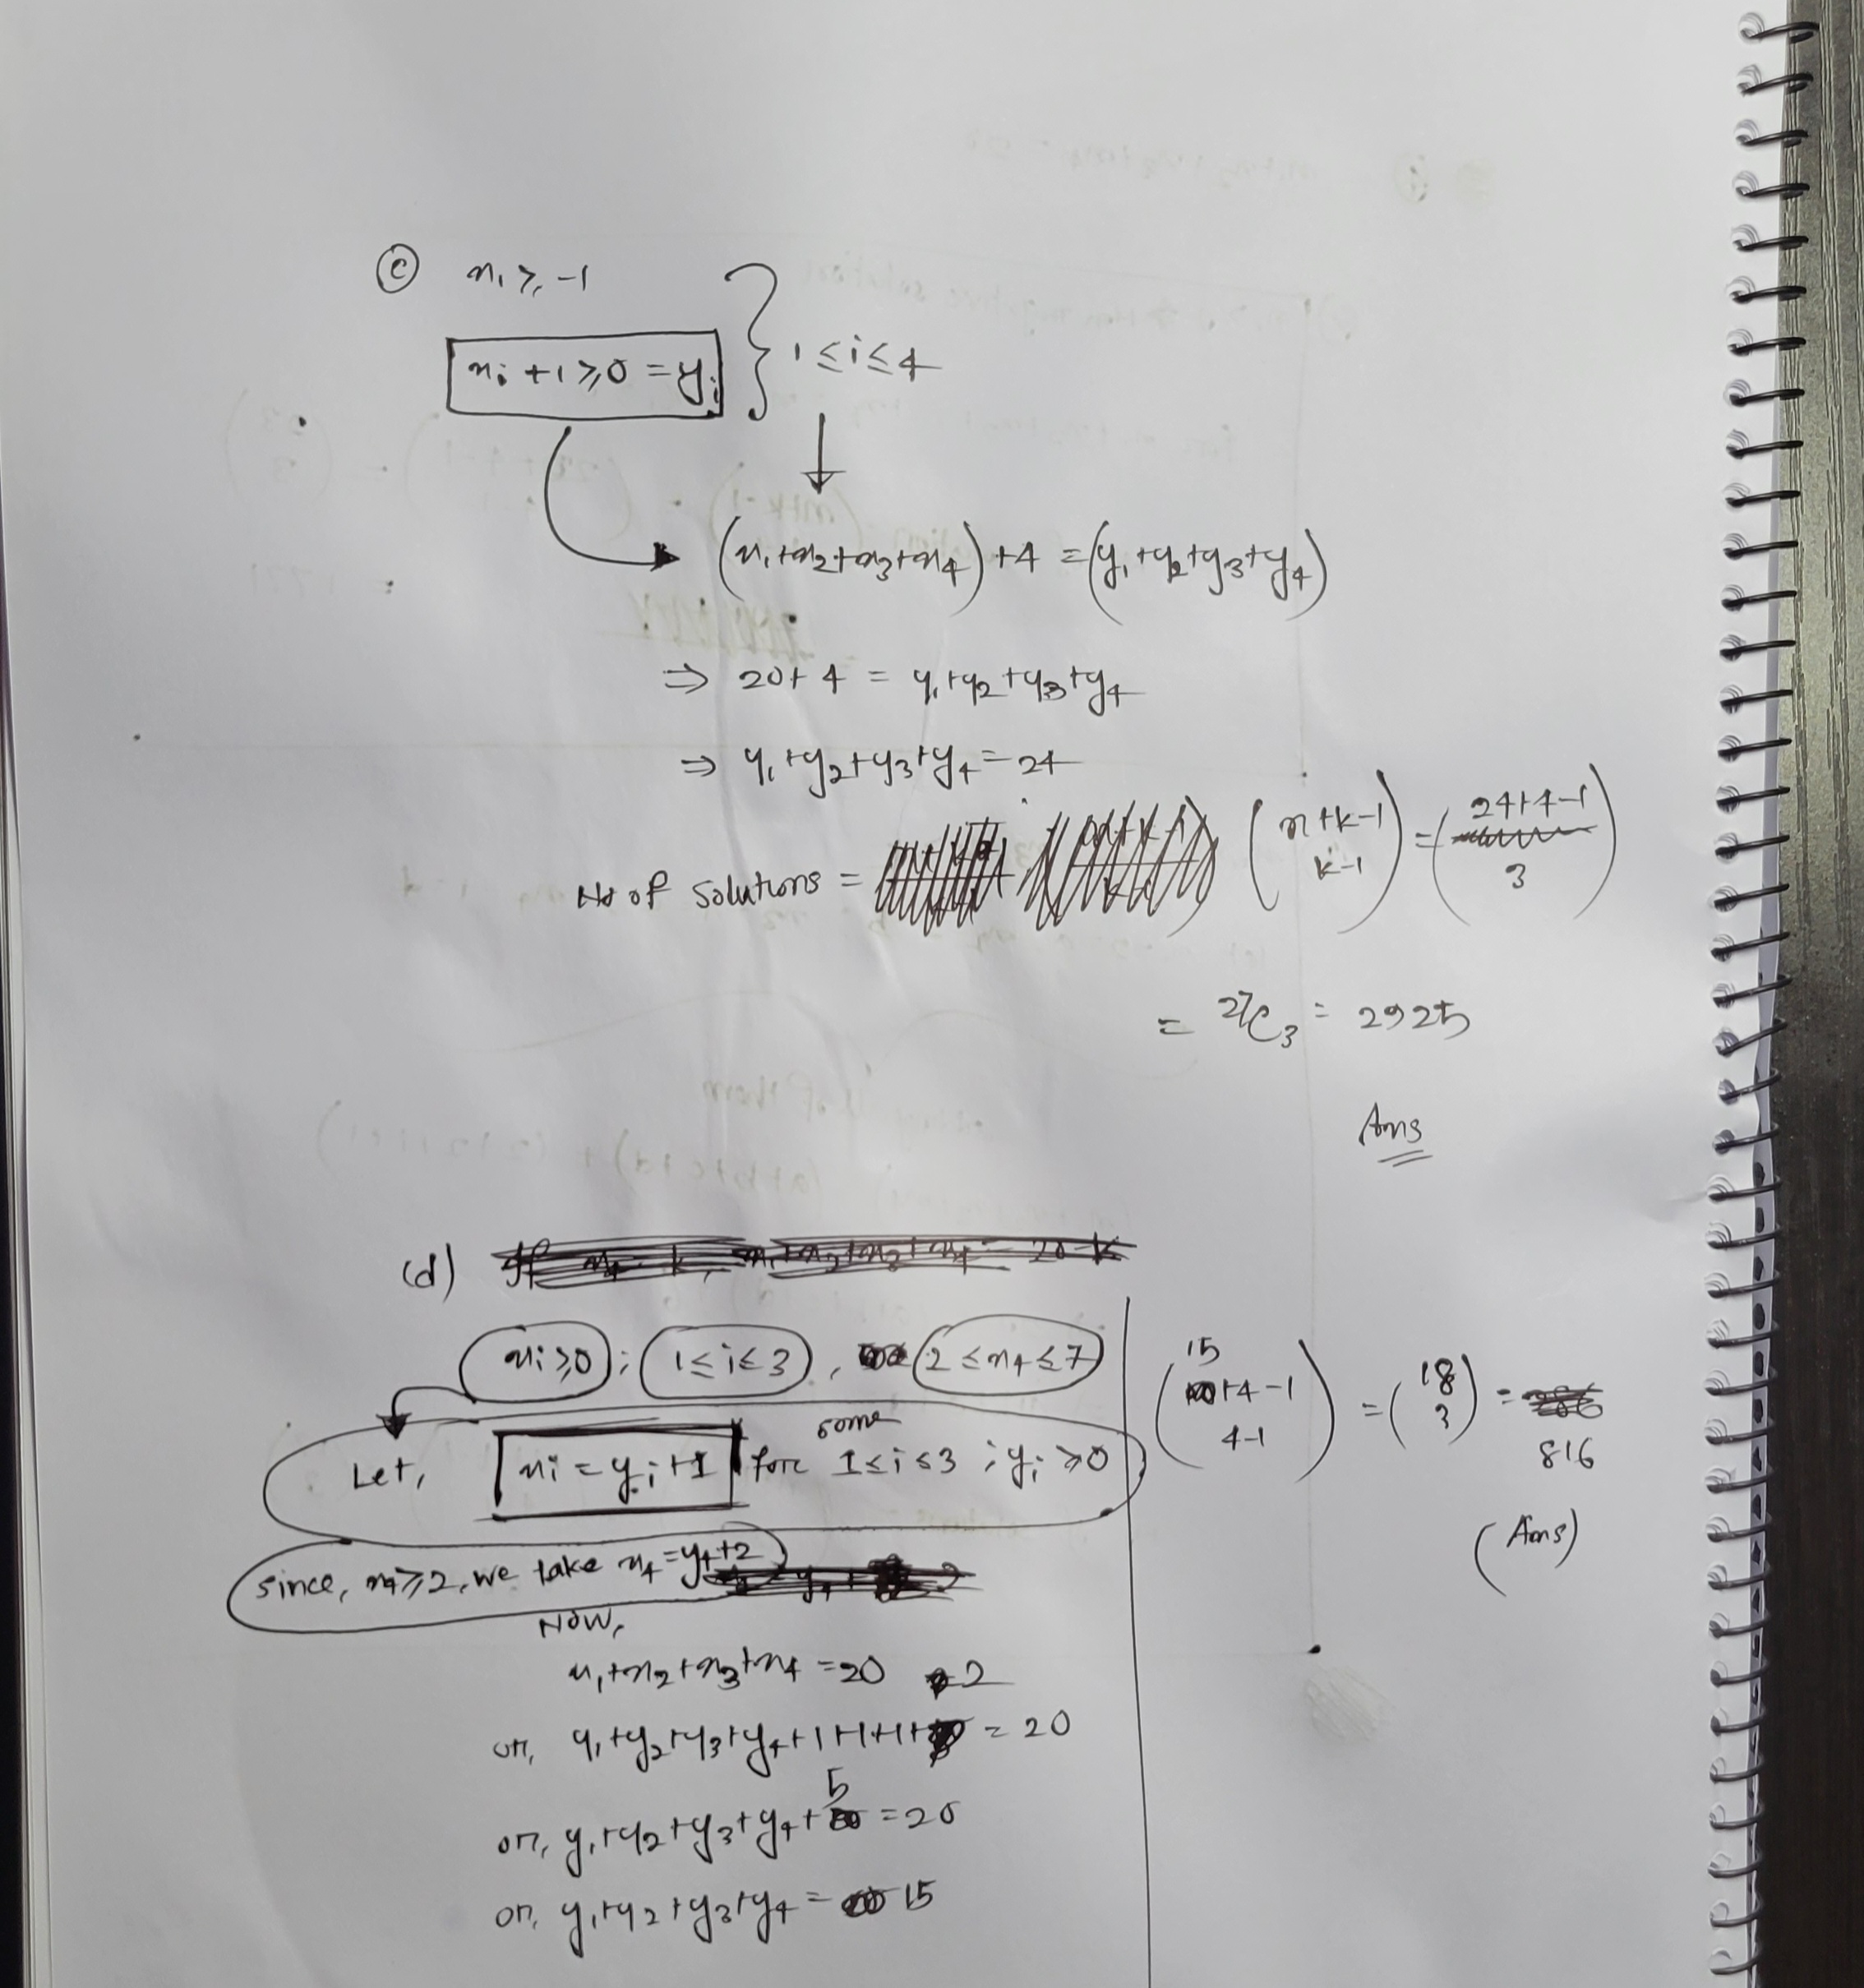 (c) x₁ ≥ -1
xᵢ + 1 ≥ 0 = yᵢ } 1 ≤ i ≤ 4
(x₁+x₂+x₃+x₄) + 4 = (y₁+y₂+y₃+y₄)
⇒ 20+4 = y₁+y₂+y₃+y₄
⇒ y₁+y₂+y₃+y₄ = 24
No of solutions = (n+k-1 k-1) = (24+4-1 3)
= ²⁷C₃ = 2925
Ans
(d)
xᵢ ≥ 0 ; 1 ≤ i ≤ 3 , 2 ≤ x₄ ≤ 7
Let, xᵢ = yᵢ + 1 for some 1 ≤ i ≤ 3 ; yᵢ ≥ 0
since, x₄ ≥ 2, we take x₄ = y₄+2
Now,
x₁+x₂+x₃+x₄ = 20
or, y₁+y₂+y₃+y₄+1+1+1+2 = 20
or, y₁+y₂+y₃+y₄+5 = 20
or, y₁+y₂+y₃+y₄ = 15
(15+4-1 4-1) = (18 3) = 816
(Ans)